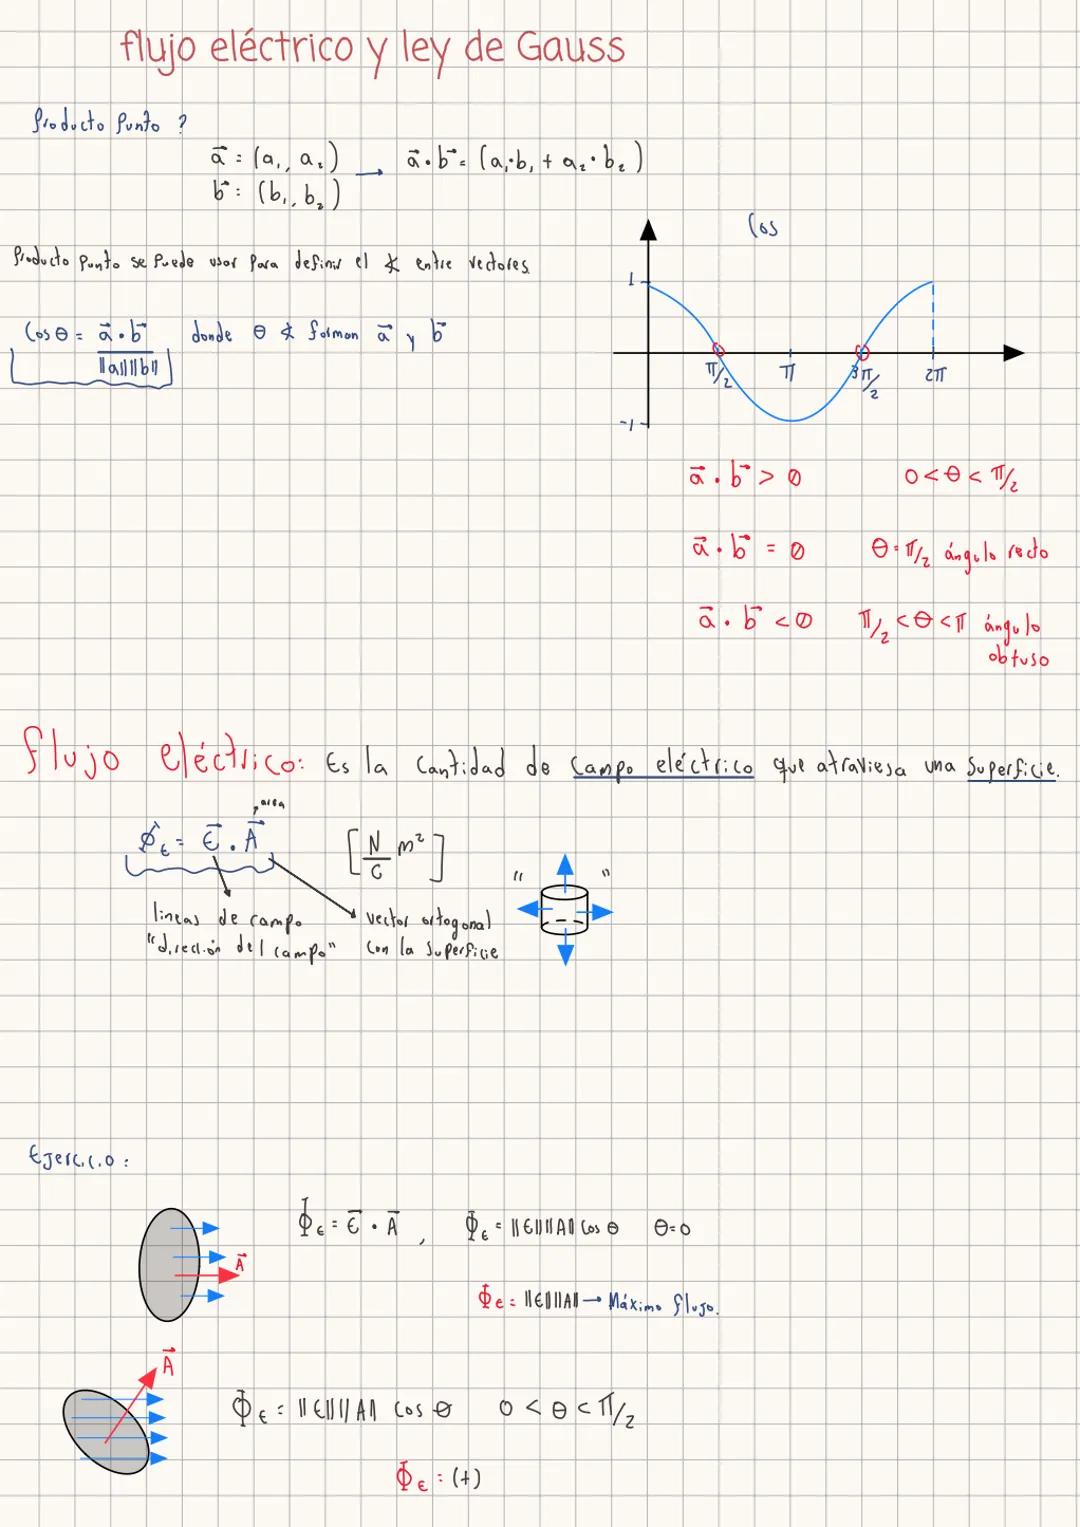 flujo eléctrico y ley de Gauss
Producto Punto ?
a⃗ = (a₁, a₂) → a⃗ · b⃗ = (a₁·b₁ + a₂·b₂)
b⃗ = (b₁, b₂)
Producto punto se puede usar para definir el ∡ entre vectores
Cos
1
-1
π/2
π
3π/2
2π
Cos θ = a⃗ · b⃗ / ||a|| ||b|| donde θ ∡ forman a⃗ y b⃗
a⃗ · b⃗ > 0 0 < θ < π/2
a⃗ · b⃗ = 0 θ = π/2 ángulo recto
a⃗ · b⃗ < 0 π/2 < θ < π ángulo
obtuso
flujo eléctrico: Es la cantidad de campo eléctrico que atraviesa una superficie.
área
Φ_ε = ε⃗ · A⃗ [N/C m²]
" "
lineas de campo
"dirección del campo"
vector ortogonal
con la superficie
Ejercicio :
Φ_ε = ε⃗ · A⃗ , Φ_ε = ||ε|| ||A|| cos θ θ=0
A⃗
Φ_e = ||ε|| ||A|| → Máximo flujo.
A⃗
Φ_ε = ||ε|| ||A|| cos θ 0 < θ < π/2
Φ_ε = (+)